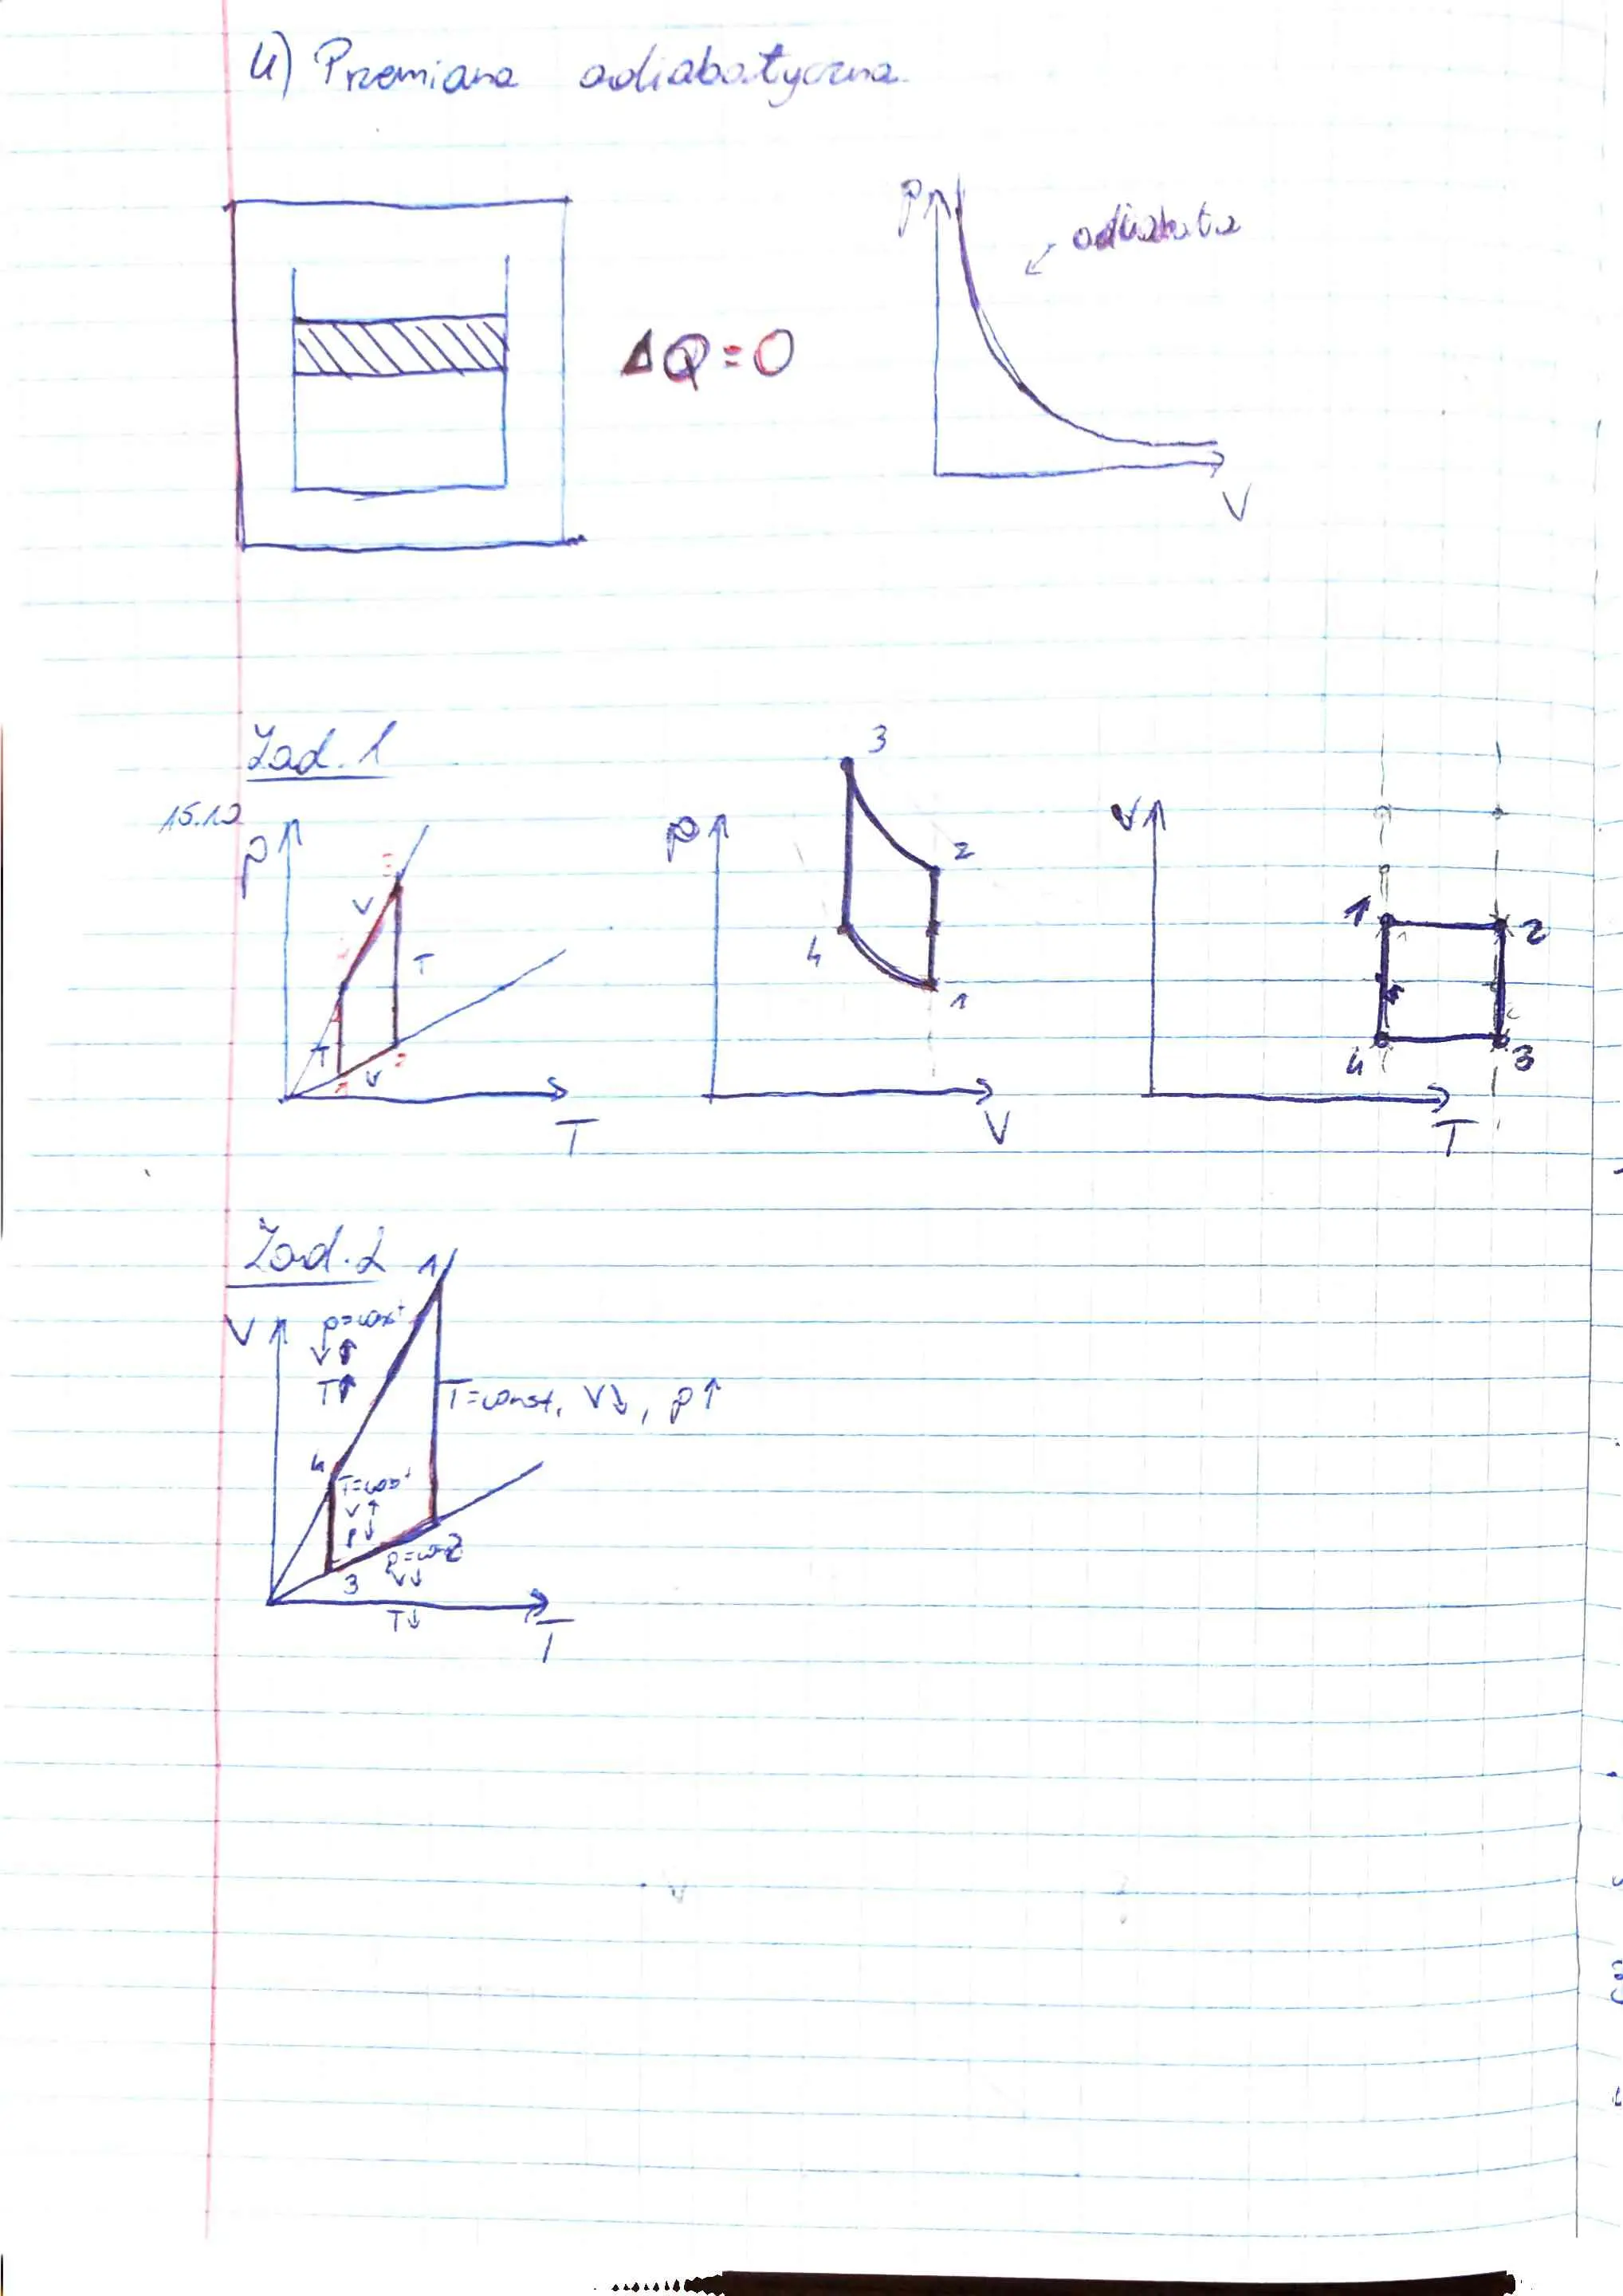 4) Przemiana adiabatyczna
p
adiabata
ΔQ=0
V
Zad. 1
15.10
p
3
V
T
T
V
T
p
3
2
4
1
V
V
1
2
4
3
T
Zad. 2
1
V
p=const
V↑
T↑
T=const, V↓, p↑
4
T=const
V↑
p↓
p=const
2
3
V↓
T↓
T